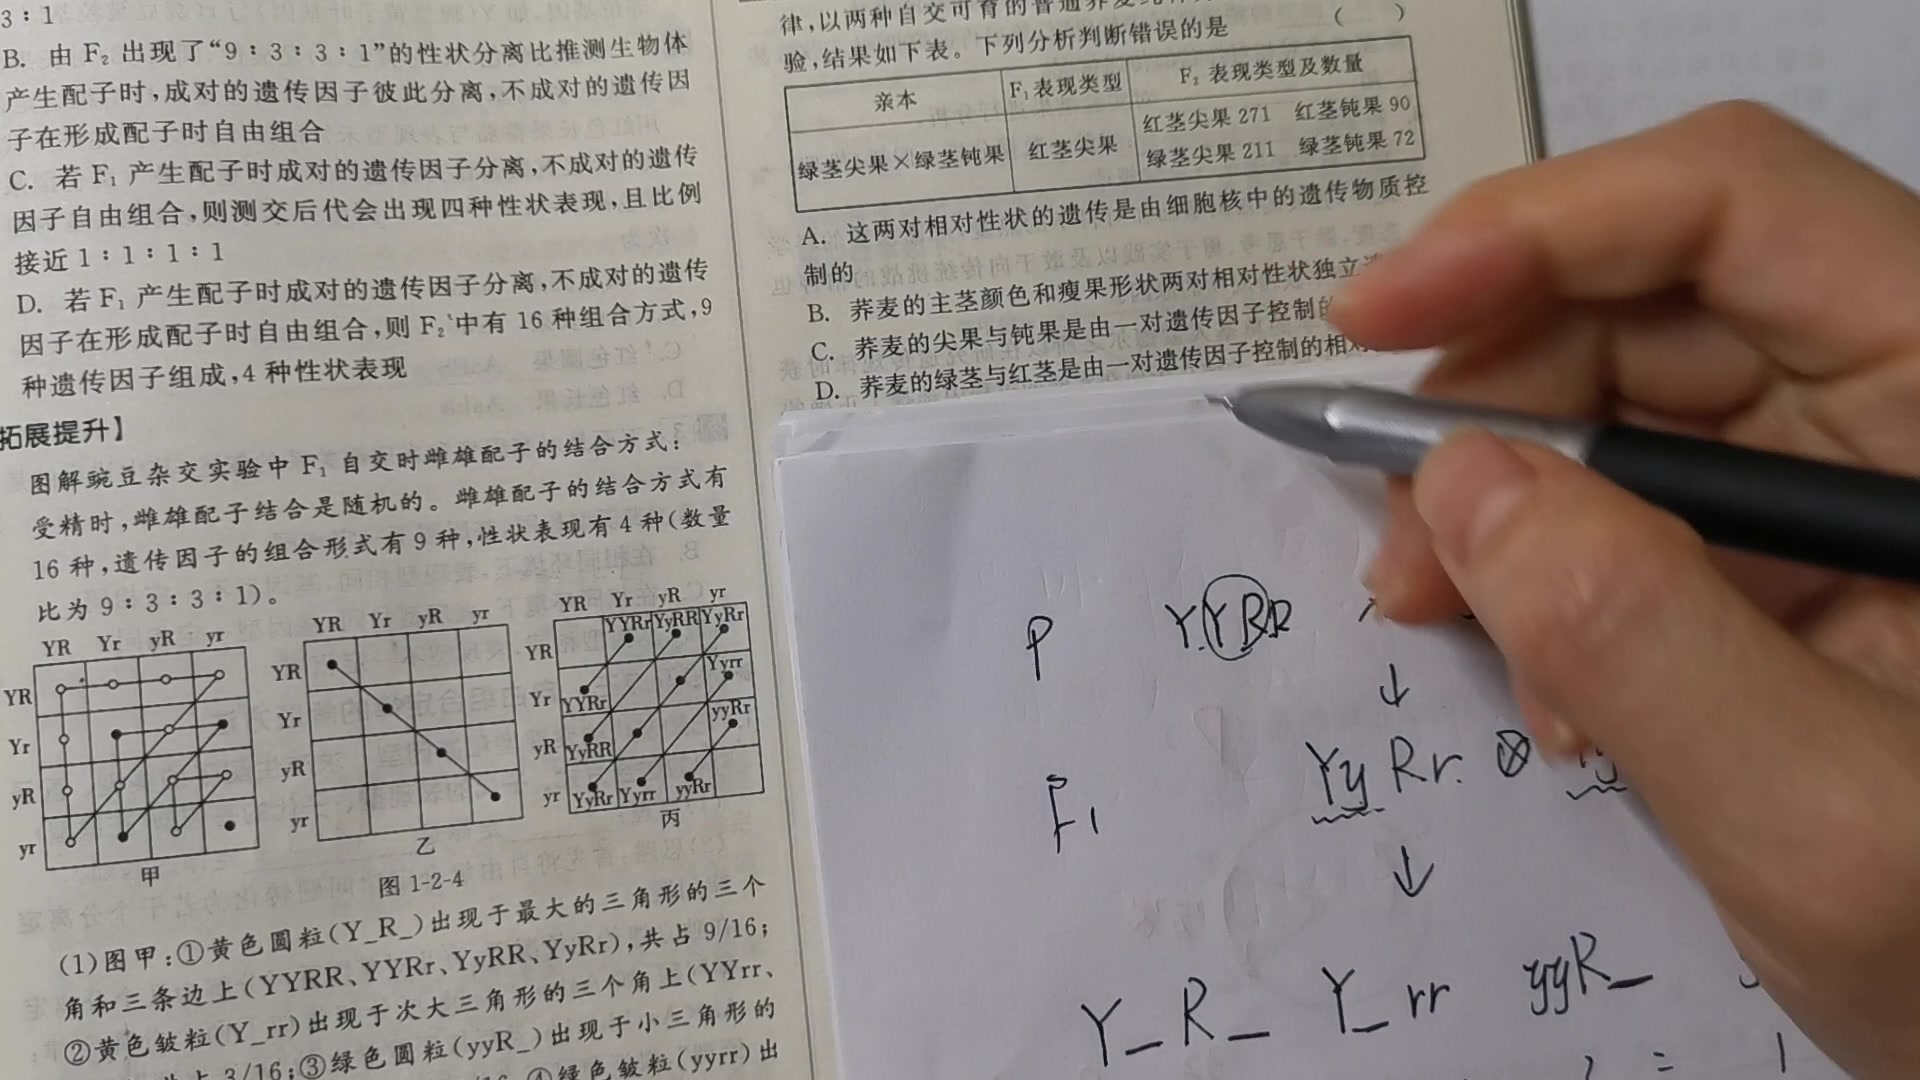 3∶1
B. 由 F₂ 出现了“9∶3∶3∶1”的性状分离比推测生物体
产生配子时,成对的遗传因子彼此分离,不成对的遗传因
子在形成配子时自由组合
C. 若 F₁ 产生配子时成对的遗传因子分离,不成对的遗传
因子自由组合,则测交后代会出现四种性状表现,且比例
接近 1∶1∶1∶1
D. 若 F₁ 产生配子时成对的遗传因子分离,不成对的遗传
因子在形成配子时自由组合,则 F₂ 中有 16 种组合方式,9
种遗传因子组成,4 种性状表现
拓展提升】
图解豌豆杂交实验中 F₁ 自交时雌雄配子的结合方式:
受精时,雌雄配子结合是随机的。雌雄配子的结合方式有
16 种,遗传因子的组合形式有 9 种,性状表现有 4 种(数量
比为 9∶3∶3∶1)。
YR Yr yR yr
YR
Yr
yR
yr
甲
YR Yr yR yr
YR
Yr
yR
yr
乙
YR Yr yR yr
YR YYRr YyRR YyRr
Yr YYRr Yyrr
yR YyRR yyRr
yr YyRr Yyrr yyRr
丙
图 1-2-4
(1)图甲:①黄色圆粒(Y_R_)出现于最大的三角形的三个
角和三条边上(YYRR、YYRr、YyRR、YyRr),共占 9/16;
②黄色皱粒(Y_rr)出现于次大三角形的三个角上(YYrr、
3/16;③绿色圆粒(yyR_)出现于小三角形的
④绿色皱粒(yyrr)出
律,以两种自交可育的普通荞麦
验,结果如下表。下列分析判断错误的是 ( )
亲本 F₁表现类型 F₂ 表现类型及数量
绿茎尖果×绿茎钝果 红茎尖果 红茎尖果 271 红茎钝果 90
绿茎尖果 211 绿茎钝果 72
A. 这两对相对性状的遗传是由细胞核中的遗传物质控
制的
B. 荞麦的主茎颜色和瘦果形状两对相对性状独立
C. 荞麦的尖果与钝果是由一对遗传因子控制的
D. 荞麦的绿茎与红茎是由一对遗传因子控制的相
P YYRR ×
↓
F₁ YyRr ⊗
↓
Y_R_ Y_rr yyR_